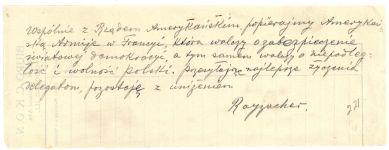 Wspólnie z Rządem Amerykańskim popierajmy Amerykań
ską Armiję w Francyi, która walczy o zabezpieczenie
światowej demokracyi, a tym samem walczy o niepodleg-
łość i wolność Polski. Przesyłając najlepsze życzenia
delegatom, pozostaję z uniżeniem